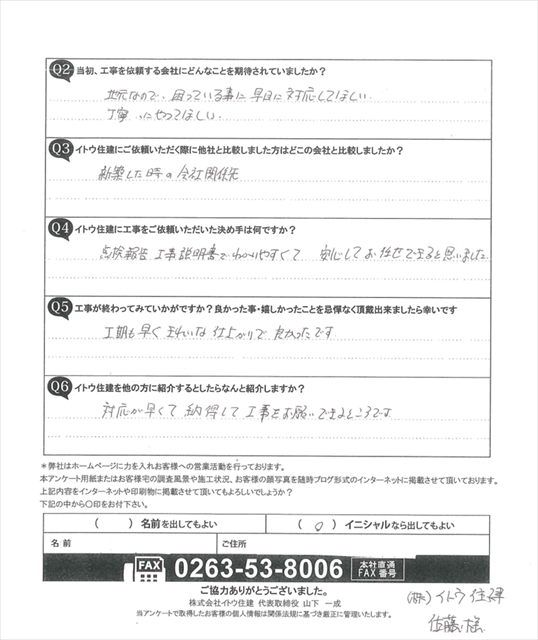 Q2 当初、工事を依頼する会社にどんなことを期待されていましたか？
地元なので、困っている事に早目に対応してほしい
丁寧にやってほしい
Q3 イトウ住建にご依頼いただく際に他社と比較しました方はどこの会社と比較しましたか？
新築した時の会社関係先
Q4 イトウ住建に工事をご依頼いただいた決め手は何ですか？
点検報告 工事説明書でわかりやすくて 安心してお任せできると思いました
Q5 工事が終わってみていかがですか？良かった事・嬉しかったことを忌憚なく頂戴出来ましたら幸いです
工期も早くきれいな仕上がりで良かったです
Q6 イトウ住建を他の方に紹介するとしたらなんと紹介しますか？
対応が早くて納得して工事をお願いできるところです
＊弊社はホームページに力を入れお客様への営業活動を行っております。
本アンケート用紙またはお客様宅の調査風景や施工状況、お客様の顔写真を随時ブログ形式のインターネットに掲載させて頂いております。
上記内容をインターネットや印刷物に掲載させて頂いてもよろしいでしょうか？
下記の中から〇印をお付下さい。
（ ）名前を出してもよい （ 〇 ）イニシャルなら出してもよい
名 前 ご住所
FAX 0263-53-8006 本社直通 FAX番号
ご協力ありがとうございました。
株式会社イトウ住建 代表取締役 山下 一成
当アンケートで取得したお客様の個人情報は関係法規に基づき厳正に管理いたします。
(株)イトウ住建
佐藤 様